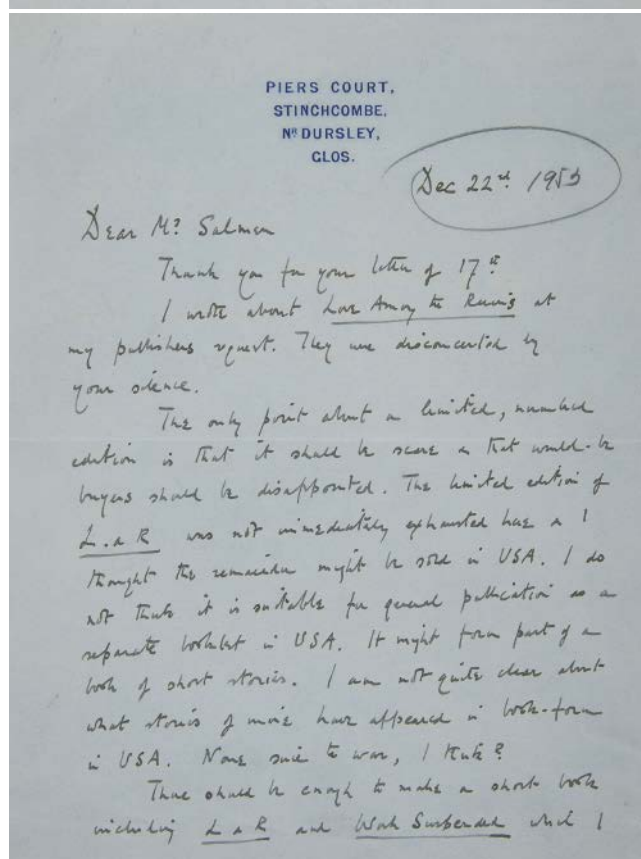 PIERS COURT,
STINCHCOMBE,
NR DURSLEY,
GLOS.
Dec 22nd 1953
Dear Mr Salmen
Thank you for your letter of 17th
I wrote about Love Among the Ruins at
my publishers request. They are disconcerted by
your silence.
The only point about a limited, numbered
edition is that it should be scarce & that would-be
buyers should be disappointed. The limited edition of
L. a R was not immediately exhausted here & I
thought the remainder might be sold in USA. I do
not think it is suitable for general publication as a
separate booklet in USA. It might form part of a
book of short stories. I am not quite clear about
what stories of mine have appeared in book-form
in USA. None since the war, I think?
There should be enough to make a short book
including L a R and Work Suspended which I